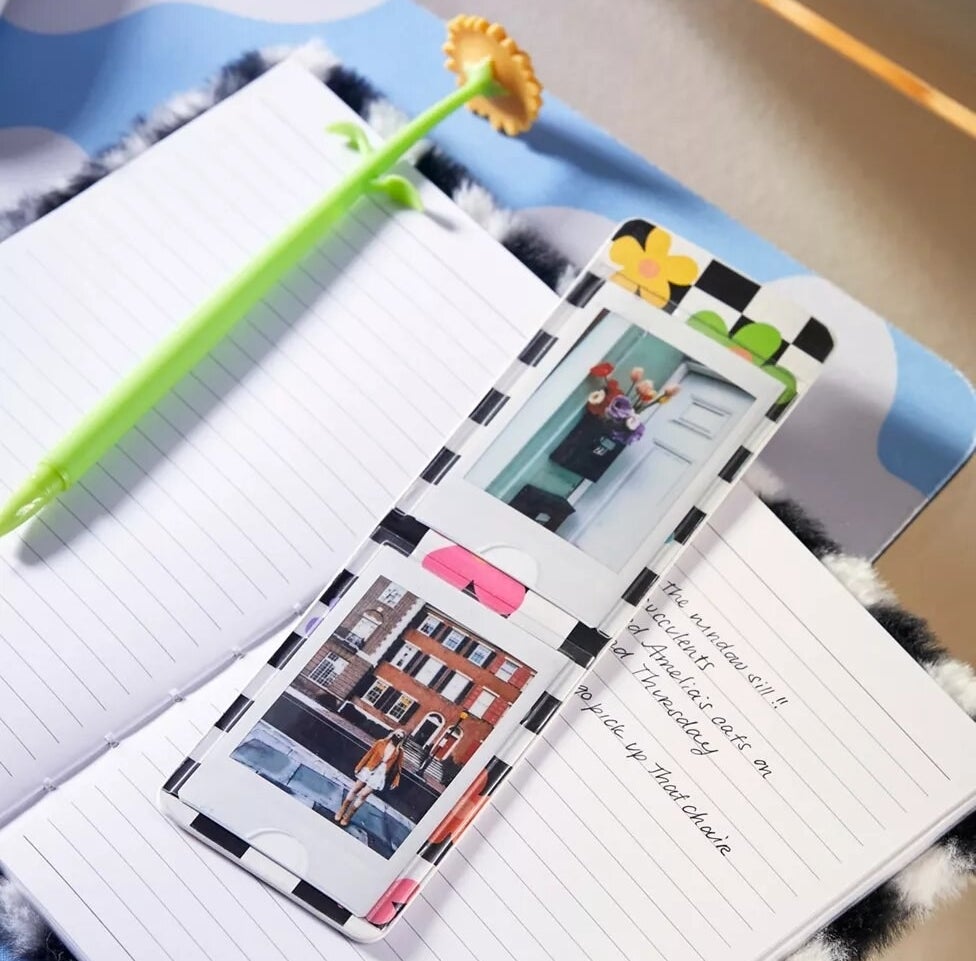 the window sill!!
ucculents
d Amelia's cats on
d Thursday
go pick up that chair